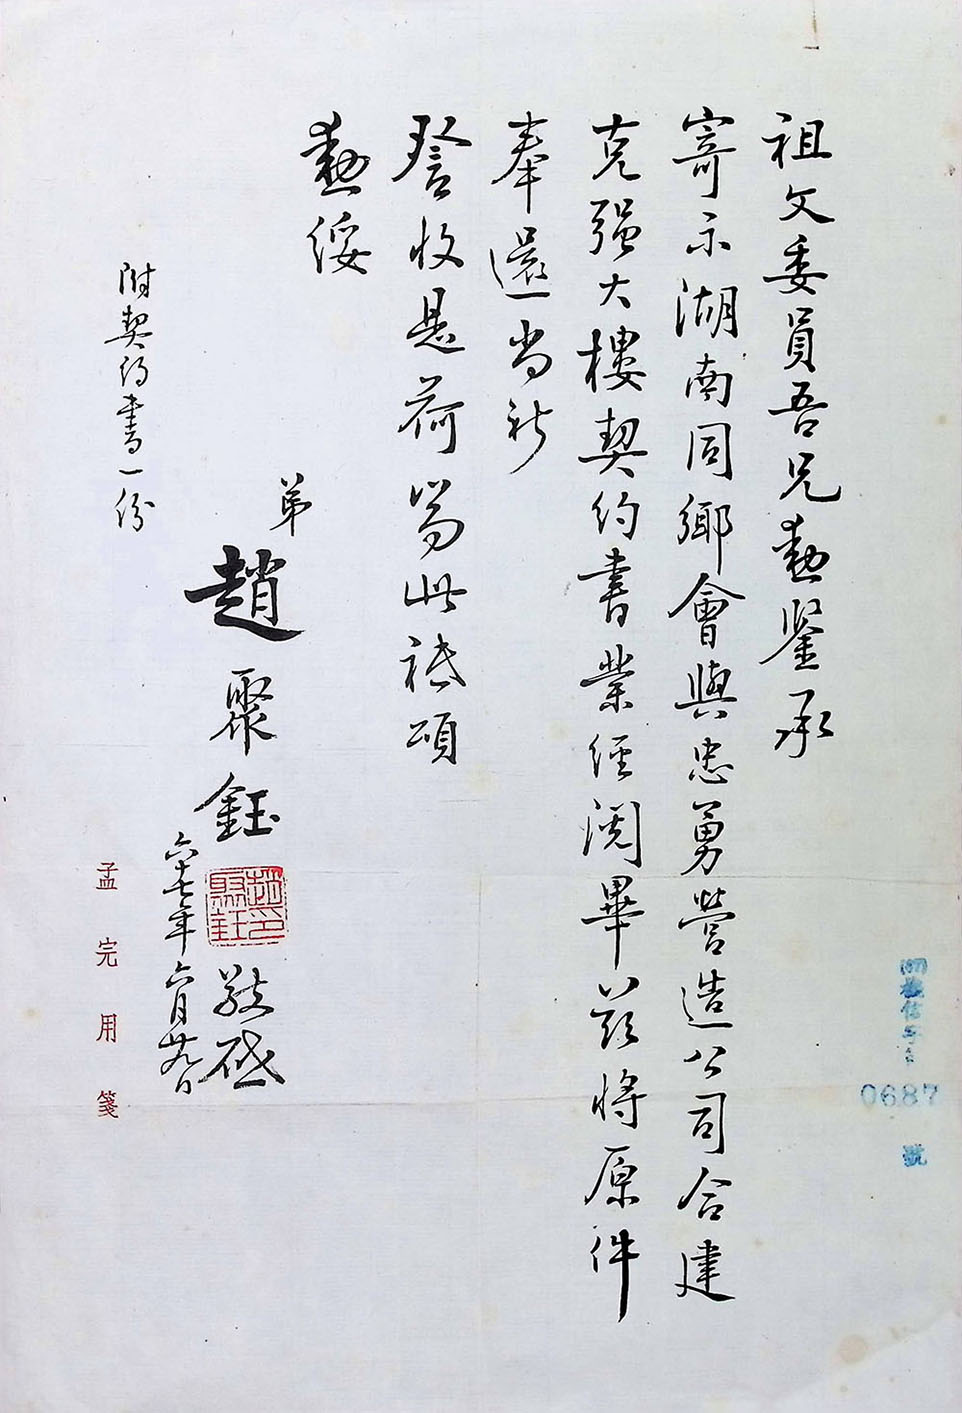 祖文委員吾兄勳鑒承
寄示湖南同鄉會與忠勇營造公司合建
克强大樓契約書業經閱畢茲將原件
奉還尚祈
詧收是荷耑此祗頌
勳綏
弟趙聚鈺敬啟
趙聚鈺印
六十七年六月廿九日
附契約書一份
孟完用箋
0687
號